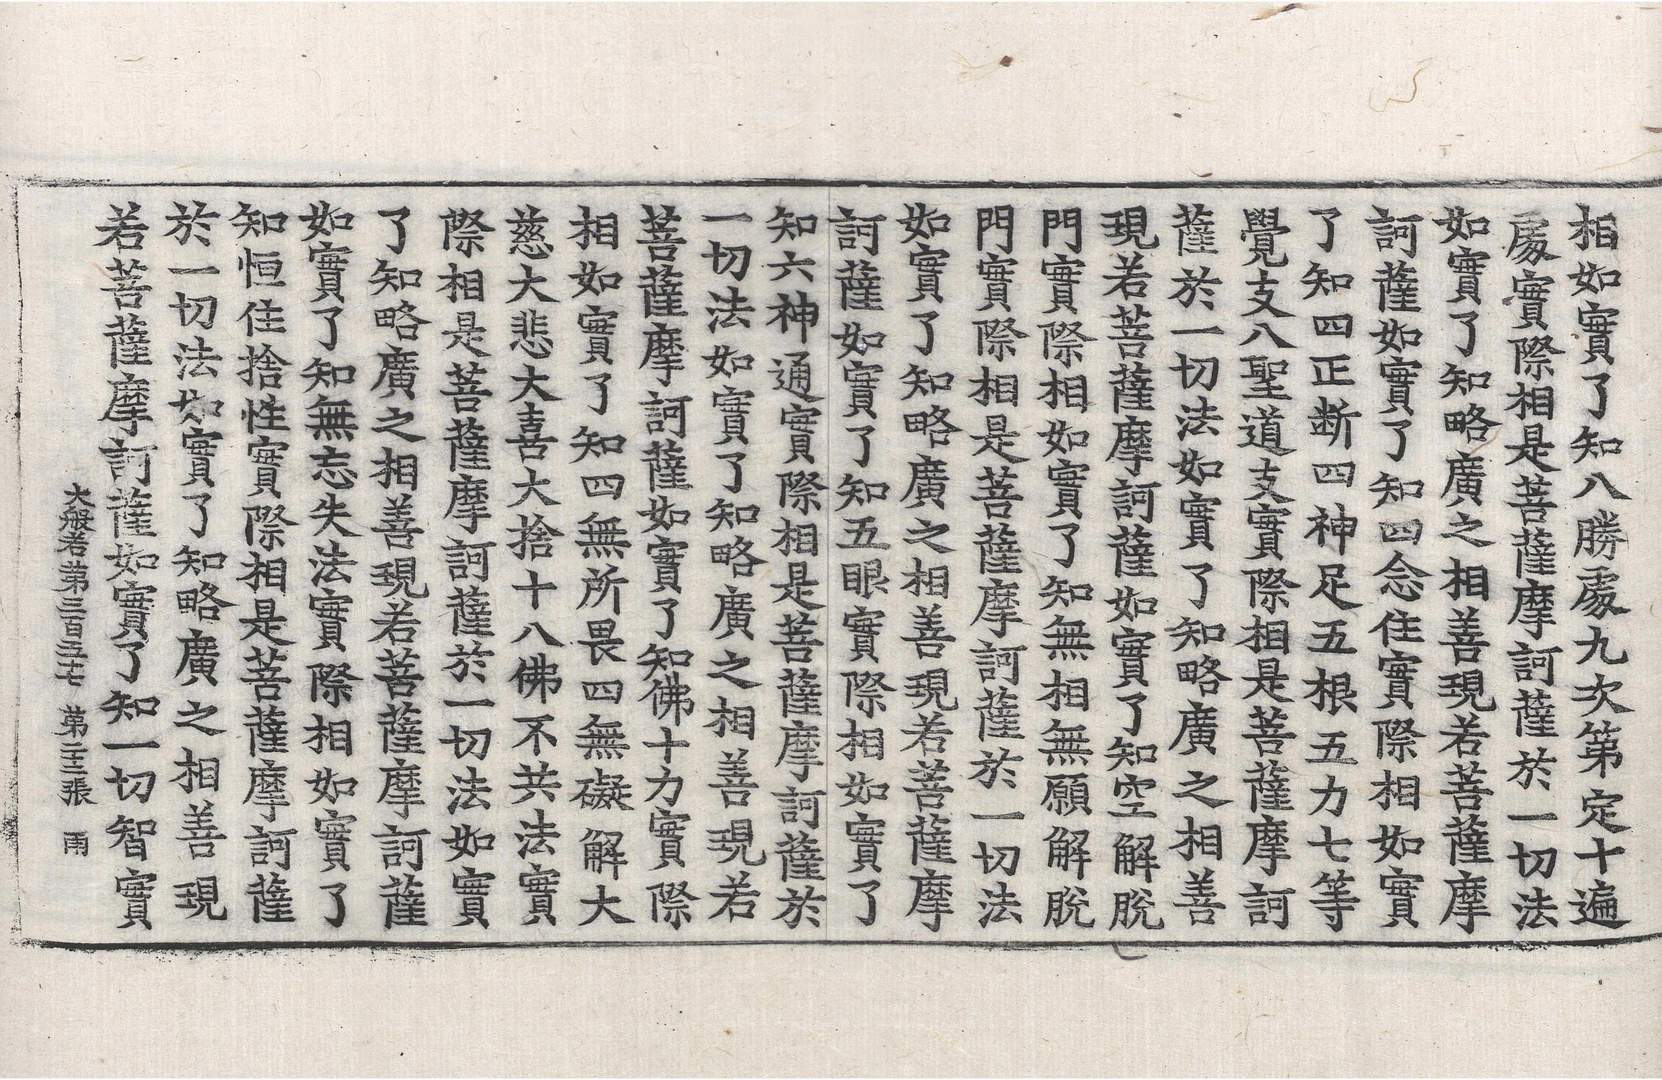 相如實了知八勝處九次第定十遍
處實際相是菩薩摩訶薩於一切法
如實了知略廣之相善現若菩薩摩
訶薩如實了知四念住實際相如實
了知四正断四神足五根五力七等
覺支八聖道支實際相是菩薩摩訶
薩於一切法如實了知略廣之相善
現若菩薩摩訶薩如實了知空解脫
門實際相如實了知無相無願解脫
門實際相是菩薩摩訶薩於一切法
如實了知略廣之相善現若菩薩摩
訶薩如實了知五眼實際相如實了
知六神通實際相是菩薩摩訶薩於
一切法如實了知略廣之相善現若
菩薩摩訶薩如實了知佛十力實際
相如實了知四無所畏四無礙解大
慈大悲大喜大捨十八佛不共法實
際相是菩薩摩訶薩於一切法如實
了知略廣之相善現若菩薩摩訶薩
如實了知無忘失法實際相如實了
知恒住捨性實際相是菩薩摩訶薩
於一切法如實了知略廣之相善現
若菩薩摩訶薩如實了知一切智實
大般若第三百五十七 第二十二張 雨